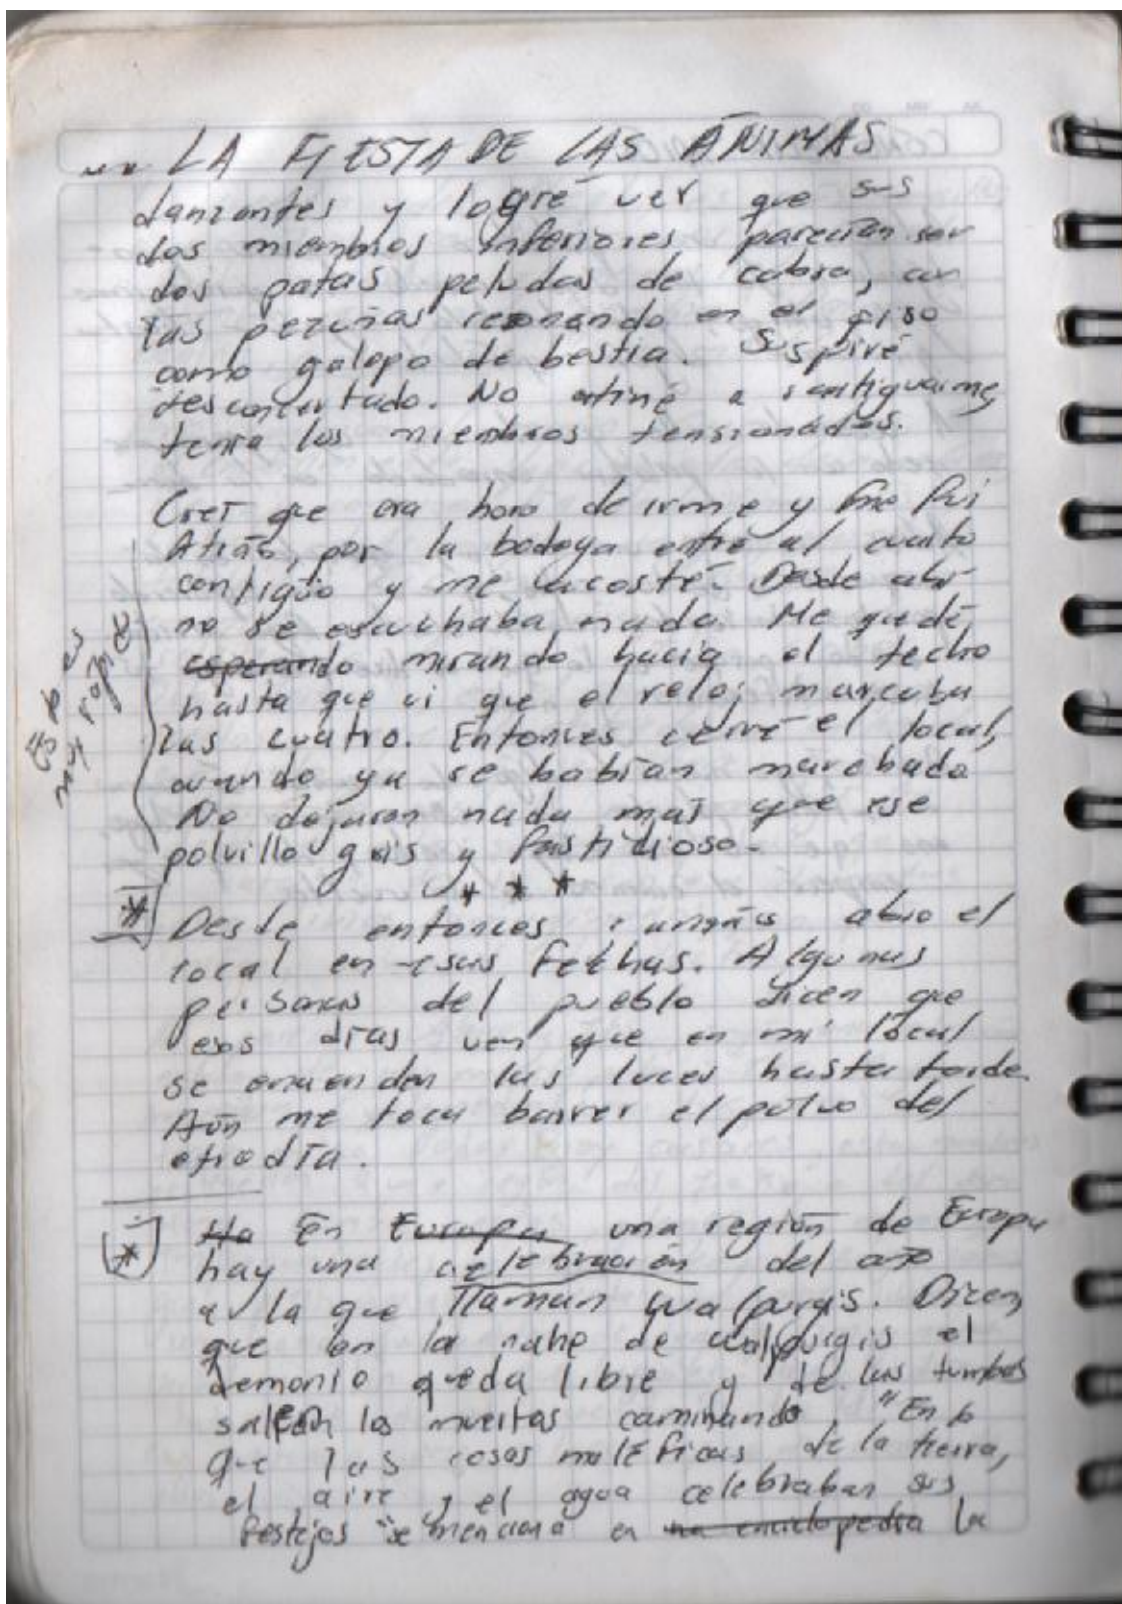 ... LA FIESTA DE LAS ÁNIMAS
danzantes y logré ver que sus
dos miembros inferiores parecían ser
dos patas peludas de cabra, con
las pezuñas resonando en el piso
como galope de bestia. Suspiré
desconcertado. No atiné a santiguarme,
tenía los miembros tensionados.
Creí que era hora de irme y me fui
Atrás, por la bodega entré al cuarto
contiguo y me acosté. Desde ahí
no se escuchaba nada. Me quedé
esperando mirando hacia el techo
hasta que vi que el reloj marcaba
las cuatro. Entonces cerré el local,
cuando ya se habían marchado
No dejaron nada más que ese
polvillo gris y fastidioso.
Esto es
muy rápido
* * *
* Desde entonces jamás abro el
local en esas fechas. Algunas
personas del pueblo dicen que
esos días ven que en mi local
se encienden las luces hasta tarde.
Aún me toca barrer el polvo del
otro día.
* Ha En Europa una región de Europa
hay una celebración del año
a la que llaman Walpurgis. Dicen
que en la noche de walpurgis el
demonio queda libre y de las tumbas
salen los muertos caminando, "En lo
que las cosas maléficas de la tierra,
el aire y el agua celebraban sus
festejos" se menciona en una enciclopedia la